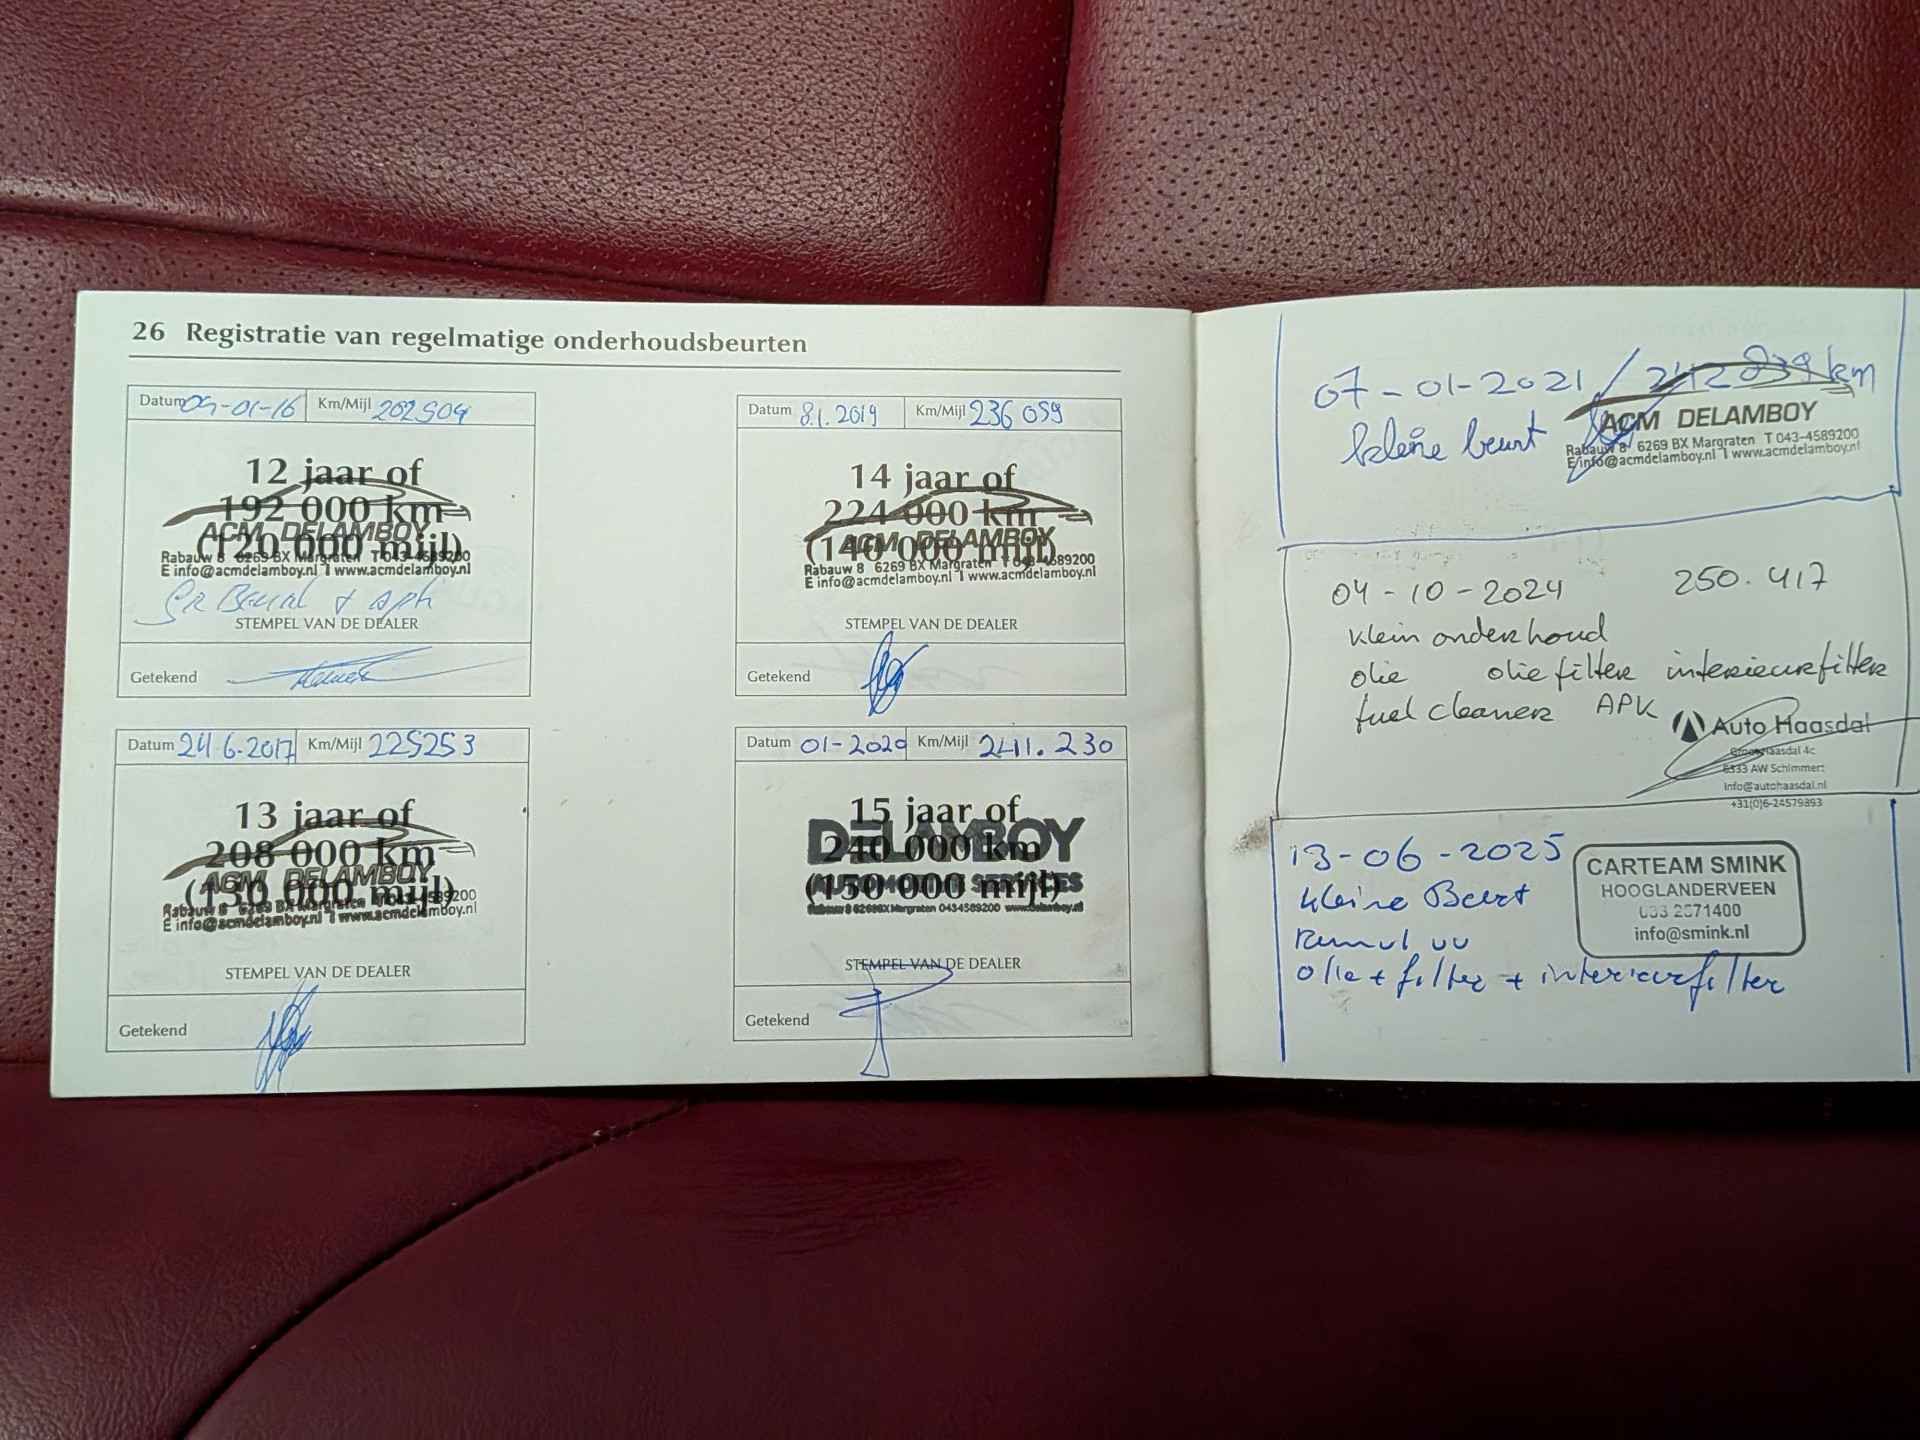 26 Registratie van regelmatige onderhoudsbeurten
Datum 09-01-16 Km/Mijl 202504
12 jaar of
192 000 km
(120 000 mijl)
ACM DELAMBOY
Rabauw 8 6269 BX Margraten T 043-4589200
E info@acmdelamboy.nl I www.acmdelamboy.nl
STEMPEL VAN DE DEALER
Getekend
Datum 24 6-2017 Km/Mijl 225253
13 jaar of
208 000 km
(130 000 mijl)
ACM DELAMBOY
Rabauw 8 6269 BX Margraten T 043-4589200
E info@acmdelamboy.nl I www.acmdelamboy.nl
STEMPEL VAN DE DEALER
Getekend
Datum 8.1.2019 Km/Mijl 236 059
14 jaar of
224 000 km
(140 000 mijl)
ACM DELAMBOY
Rabauw 8 6269 BX Margraten T 043-4589200
E info@acmdelamboy.nl I www.acmdelamboy.nl
STEMPEL VAN DE DEALER
Getekend
Datum 01-2020 Km/Mijl 241.230
15 jaar of
240 000 km
(150 000 mijl)
DELAMBOY
AUTOMOTIVE SERVICES
Rabauw 8 6269BX Margraten 043-4589200 www.delamboy.nl
STEMPEL VAN DE DEALER
Getekend
07-01-2021 / 242 839 km
kleine beurt
ACM DELAMBOY
Rabauw 8 6269 BX Margraten T 043-4589200
E info@acmdelamboy.nl I www.acmdelamboy.nl
04-10-2024 250.417
klein onderhoud
olie olie filter interieurfilter
fuel cleaner APK
Auto Haasdal
Groot Haasdal 4c
6333 AW Schimmert
info@autohaasdal.nl
+31(0)6-24579893
13-06-2025
kleine Beurt
olie + filter + interieurfilter
CARTEAM SMINK
HOOGLANDERVEEN
033 2571400
info@smink.nl